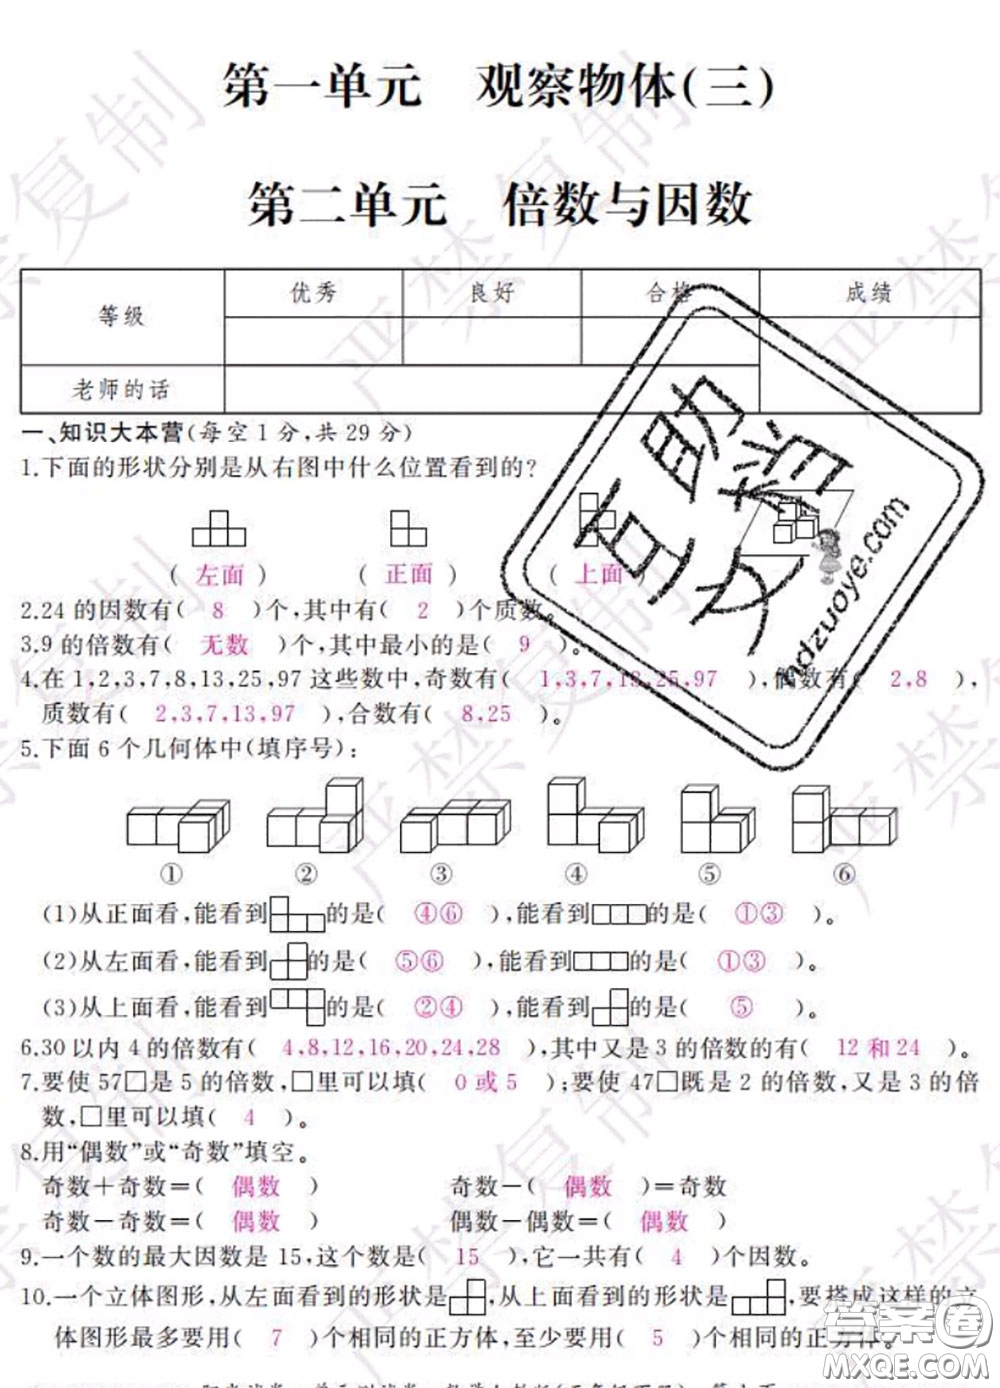 第一单元 观察物体(三)
第二单元 倍数与因数
等级 优秀 良好 合格 成绩
老师的话
一、知识大本营(每空1分,共29分)
1.下面的形状分别是从右图中什么位置看到的?
( 左面 ) ( 正面 ) ( 上面 )
2.24的因数有( 8 )个,其中有( 2 )个质数。
3.9的倍数有( 无数 )个,其中最小的是( 9 )。
4.在1,2,3,7,8,13,25,97这些数中,奇数有( 1,3,7,13,25,97 ),偶数有( 2,8 ),
质数有( 2,3,7,13,97 ),合数有( 8,25 )。
5.下面6个几何体中(填序号):
① ② ③ ④ ⑤ ⑥
(1)从正面看,能看到的是( ④⑥ ),能看到的是( ①③ )。
(2)从左面看,能看到的是( ⑤⑥ ),能看到的是( ①③ )。
(3)从上面看,能看到的是( ②④ ),能看到的是( ⑤ )。
6.30以内4的倍数有( 4,8,12,16,20,24,28 ),其中又是3的倍数的有( 12和24 )。
7.要使57□是5的倍数,□里可以填( 0或5 );要使47□既是2的倍数,又是3的倍
数,□里可以填( 4 )。
8.用“偶数”或“奇数”填空。
奇数+奇数=( 偶数 ) 奇数-( 偶数 )=奇数
奇数-奇数=( 偶数 ) 偶数-偶数=( 偶数 )
9.一个数的最大因数是15,这个数是( 15 ),它一共有( 4 )个因数。
10.一个立体图形,从左面看到的形状是,从上面看到的形状是,要搭成这样的立
体图形最多要用( 7 )个相同的正方体,至少要用( 5 )个相同的正方体。
严禁复制
作业帮助
ndzuoye.com
答案圈
MXQE.COM